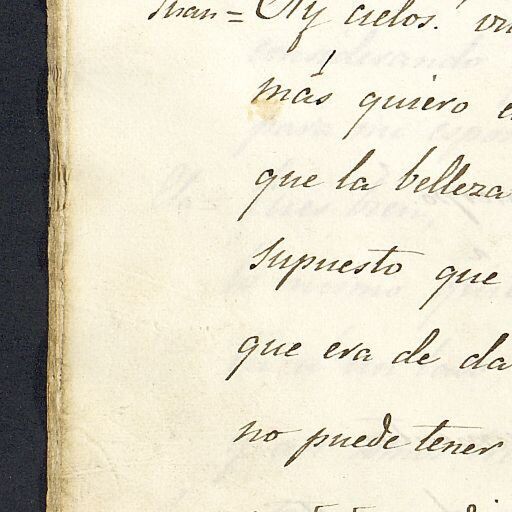 Juan = Ay cielos!
más quiero
que la belleza
supuesto que
que era de da
no puede tener